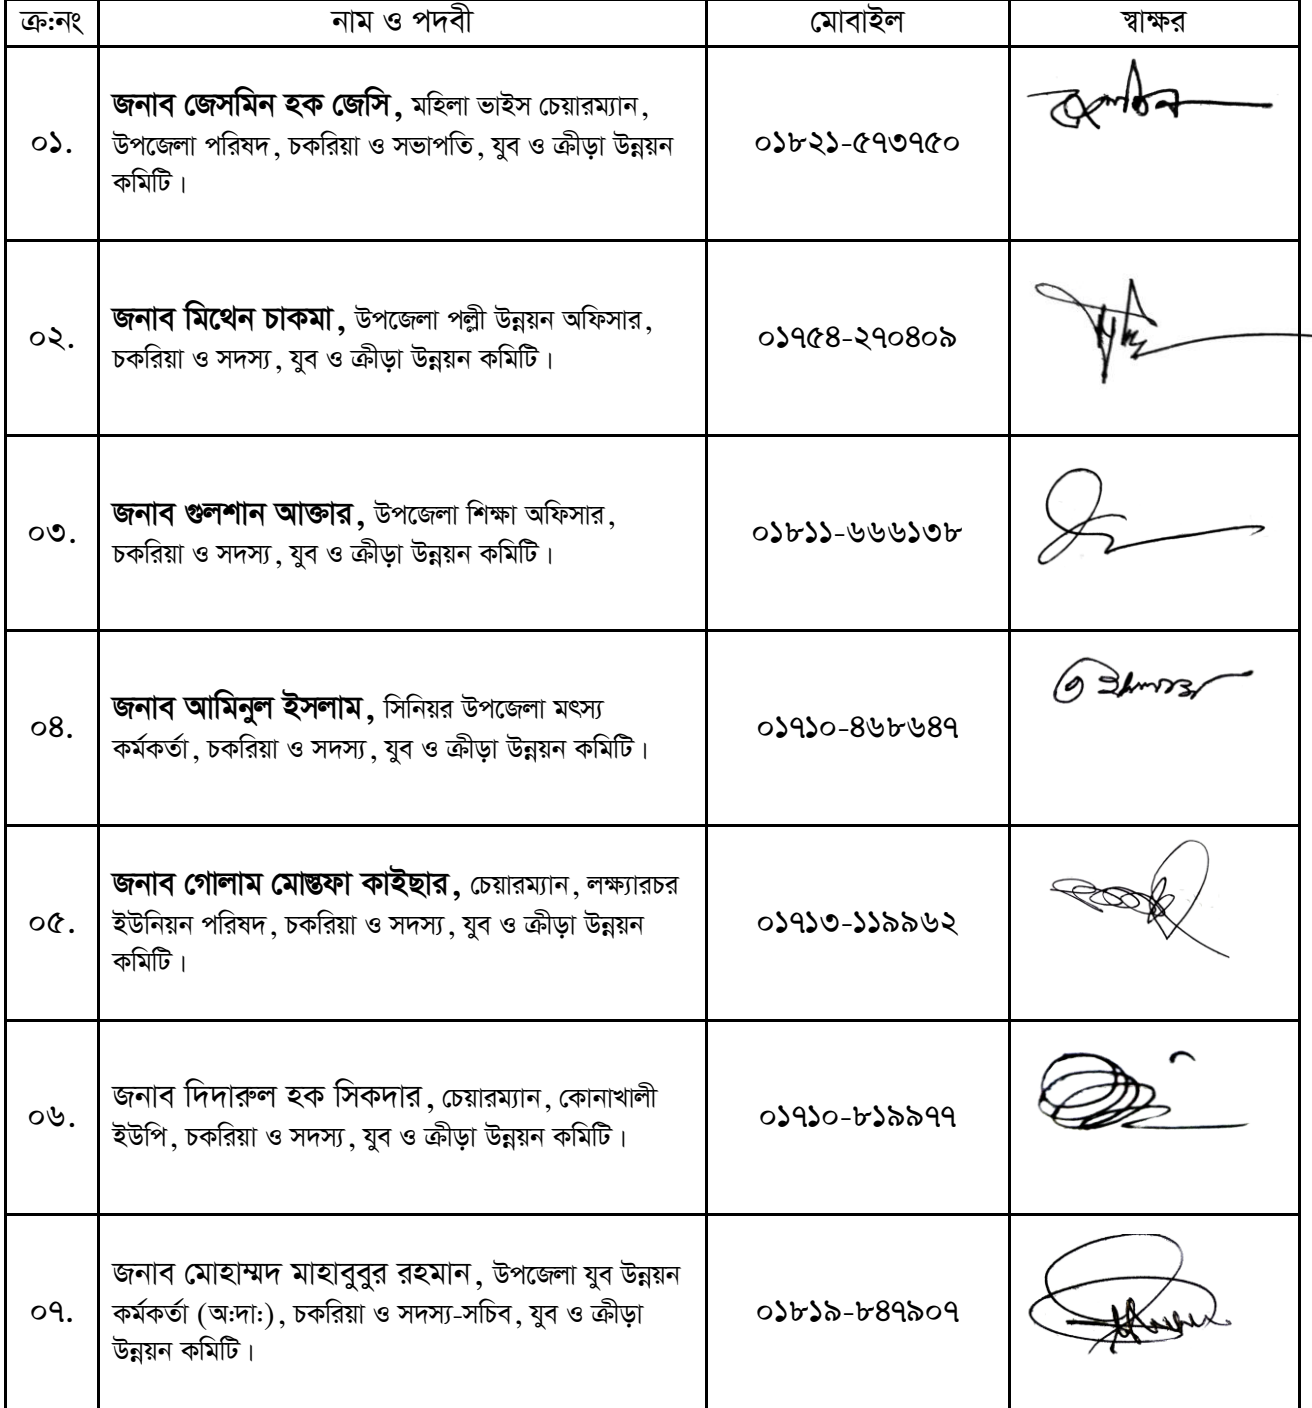 ক্র:নং নাম ও পদবী মোবাইল স্বাক্ষর
০১. জনাব জেসমিন হক জেসি, মহিলা ভাইস চেয়ারম্যান,
উপজেলা পরিষদ, চকরিয়া ও সভাপতি, যুব ও ক্রীড়া উন্নয়ন
কমিটি।
০১৮২১-৫৭৩৭৫০
০২. জনাব মিথেন চাকমা, উপজেলা পল্লী উন্নয়ন অফিসার,
চকরিয়া ও সদস্য, যুব ও ক্রীড়া উন্নয়ন কমিটি।
০১৭৫৪-২৭০৪০৯
০৩. জনাব গুলশান আক্তার, উপজেলা শিক্ষা অফিসার,
চকরিয়া ও সদস্য, যুব ও ক্রীড়া উন্নয়ন কমিটি।
০১৮১১-৬৬৬১৩৮
০৪. জনাব আমিনুল ইসলাম, সিনিয়র উপজেলা মৎস্য
কর্মকর্তা, চকরিয়া ও সদস্য, যুব ও ক্রীড়া উন্নয়ন কমিটি।
০১৭১০-৪৬৮৬৪৭
০৫. জনাব গোলাম মোস্তফা কাইছার, চেয়ারম্যান, লক্ষ্যারচর
ইউনিয়ন পরিষদ, চকরিয়া ও সদস্য, যুব ও ক্রীড়া উন্নয়ন
কমিটি।
০১৭১৩-১১৯৯৬২
০৬. জনাব দিদারুল হক সিকদার, চেয়ারম্যান, কোনাখালী
ইউপি, চকরিয়া ও সদস্য, যুব ও ক্রীড়া উন্নয়ন কমিটি।
০১৭১০-৮১৯৯৭৭
০৭. জনাব মোহাম্মদ মাহাবুবুর রহমান, উপজেলা যুব উন্নয়ন
কর্মকর্তা (অ:দা:), চকরিয়া ও সদস্য-সচিব, যুব ও ক্রীড়া
উন্নয়ন কমিটি।
০১৮১৯-৮৪৭৯০৭